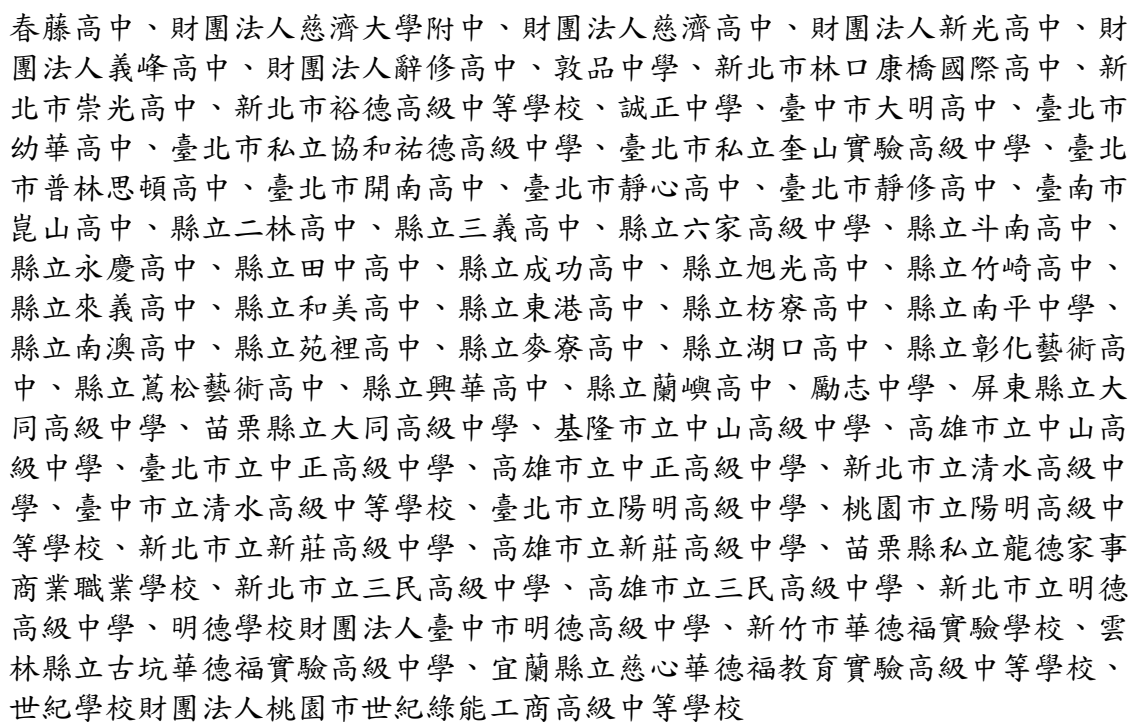 春藤高中、財團法人慈濟大學附中、財團法人慈濟高中、財團法人新光高中、財
團法人義峰高中、財團法人辭修高中、敦品中學、新北市林口康橋國際高中、新
北市崇光高中、新北市裕德高級中等學校、誠正中學、臺中市大明高中、臺北市
幼華高中、臺北市私立協和祐德高級中學、臺北市私立奎山實驗高級中學、臺北
市普林思頓高中、臺北市開南高中、臺北市靜心高中、臺北市靜修高中、臺南市
崑山高中、縣立二林高中、縣立三義高中、縣立六家高級中學、縣立斗南高中、
縣立永慶高中、縣立田中高中、縣立成功高中、縣立旭光高中、縣立竹崎高中、
縣立來義高中、縣立和美高中、縣立東港高中、縣立枋寮高中、縣立南平中學、
縣立南澳高中、縣立苑裡高中、縣立麥寮高中、縣立湖口高中、縣立彰化藝術高
中、縣立蔦松藝術高中、縣立興華高中、縣立蘭嶼高中、勵志中學、屏東縣立大
同高級中學、苗栗縣立大同高級中學、基隆市立中山高級中學、高雄市立中山高
級中學、臺北市立中正高級中學、高雄市立中正高級中學、新北市立清水高級中
學、臺中市立清水高級中等學校、臺北市立陽明高級中學、桃園市立陽明高級中
等學校、新北市立新莊高級中學、高雄市立新莊高級中學、苗栗縣私立龍德家事
商業職業學校、新北市立三民高級中學、高雄市立三民高級中學、新北市立明德
高級中學、明德學校財團法人臺中市明德高級中學、新竹市華德福實驗學校、雲
林縣立古坑華德福實驗高級中學、宜蘭縣立慈心華德福教育實驗高級中等學校、
世紀學校財團法人桃園市世紀綠能工商高級中等學校